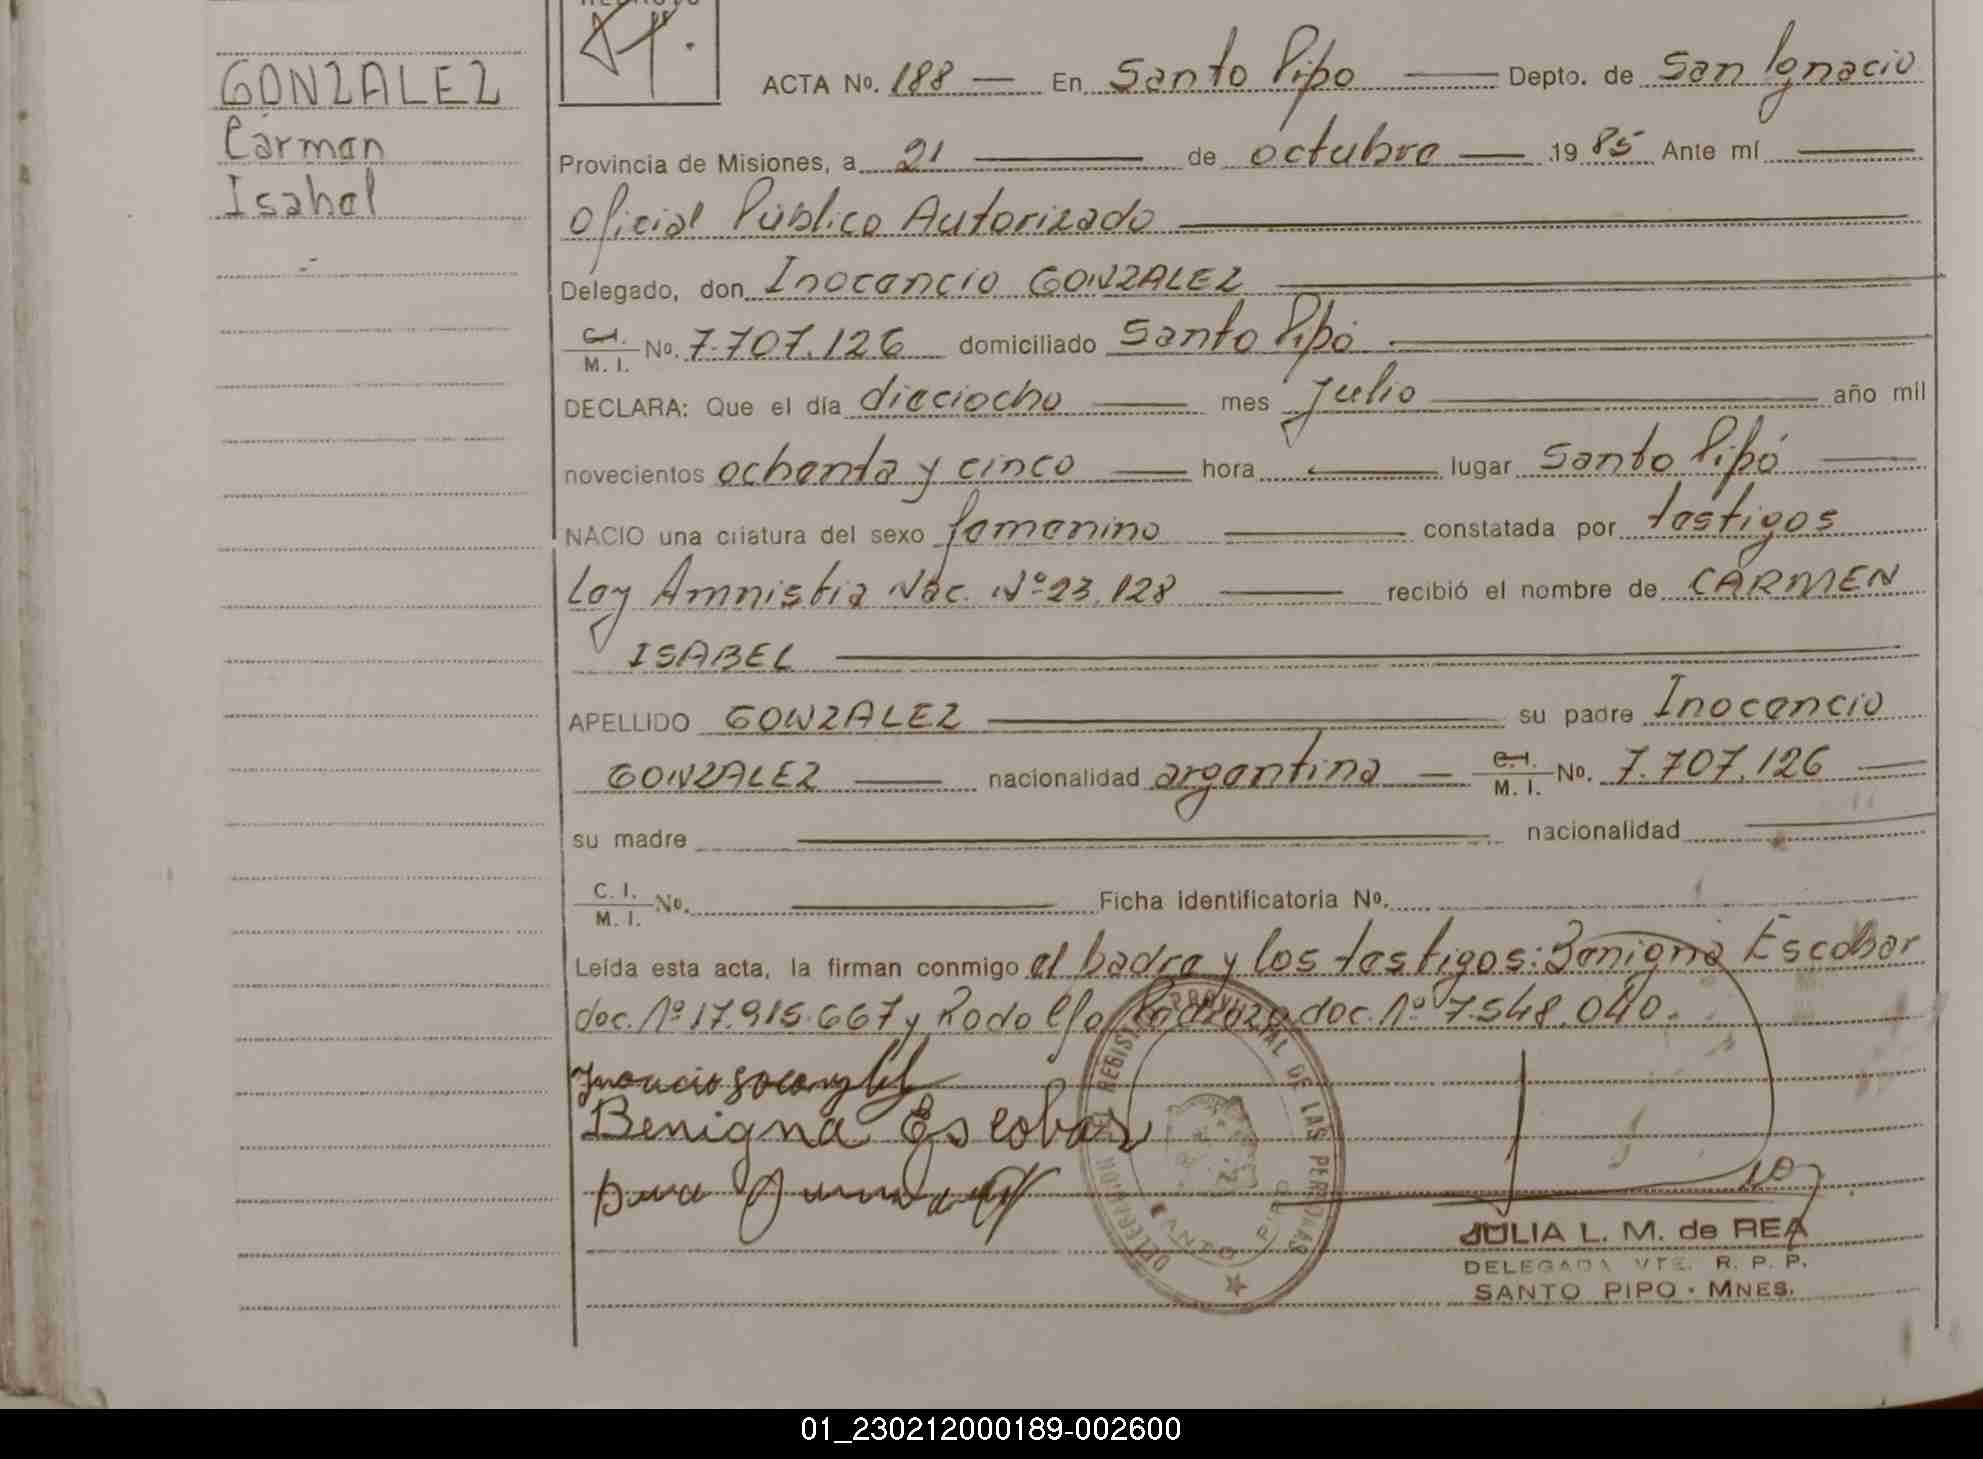 GONZALEZ
Carmen
Isabel
ACTA No. 188 — En Santo Pipo — Depto. de San Ignacio
Provincia de Misiones, a 21 — de octubre — 19 85 Ante mí —
Oficial Público Autorizado
Delegado, don Inocencio GONZALEZ
C.I. / M. I. No. 7.707.126 domiciliado Santo Pipó
DECLARA: Que el día dieciocho — mes Julio — año mil
novecientos ochenta y cinco — hora — lugar Santo Pipó —
NACIO una criatura del sexo femenino — constatada por testigos
Ley Amnistia Nac. Nº 23.128 — recibió el nombre de CARMEN
ISABEL
APELLIDO GONZALEZ — su padre Inocencio
GONZALEZ — nacionalidad argentina — C.I. / M. I. No. 7.707.126 —
su madre — nacionalidad —
C. I. / M. I. No. — Ficha identificatoria No.
Leída esta acta, la firman conmigo el padre y los testigos: Benigna Escobar
doc. Nº 17.915.667 y Rodolfo Pedrozo doc. Nº 7.548.040.
Benigna Escobar
DELEGACION REGISTRO PROVINCIAL DE LAS PERSONAS
SANTO PIPO
JULIA L. M. de REA
DELEGADA VTE. R. P. P.
SANTO PIPO - MNES.
01_230212000189-002600